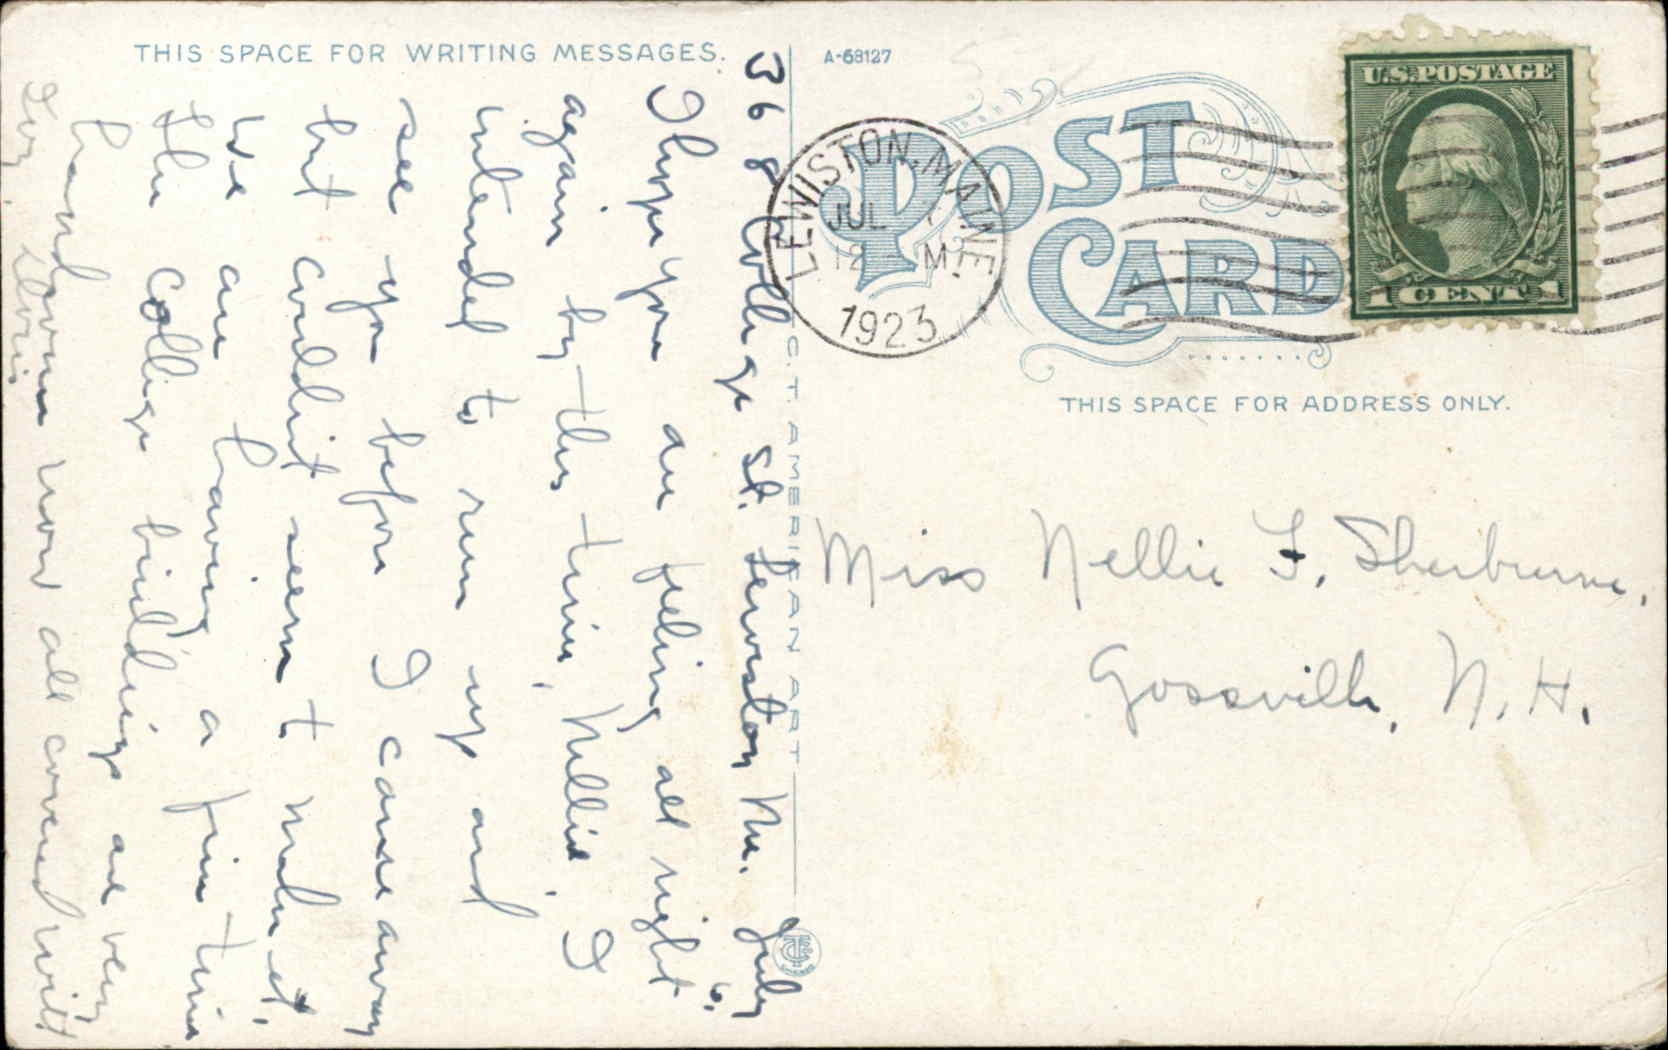 THIS SPACE FOR WRITING MESSAGES.
A-68127
POST
CARD
LEWISTON, MAINE
JUL
12 M
1923
U.S. POSTAGE
1 CENT 1
THIS SPACE FOR ADDRESS ONLY.
C.T. AMERICAN ART
Miss Nellie F. Sherburne,
Gossville, N. H.
368 College St. Lewiston Me. July 6.
I hope you are feeling all right
again by this time, Nellie. I
intended to run up and
see you before I came away
but couldn't seem to make it.
We are having a fine time
The College buildings are very
handsome now all covered with
Ivy.